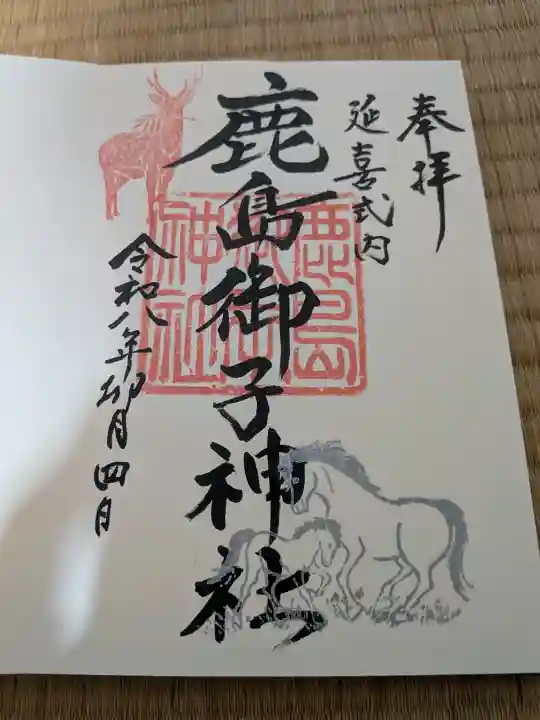 奉拝
延喜式内
鹿島御子神社
鹿島御子神社
令和八年卯月四日